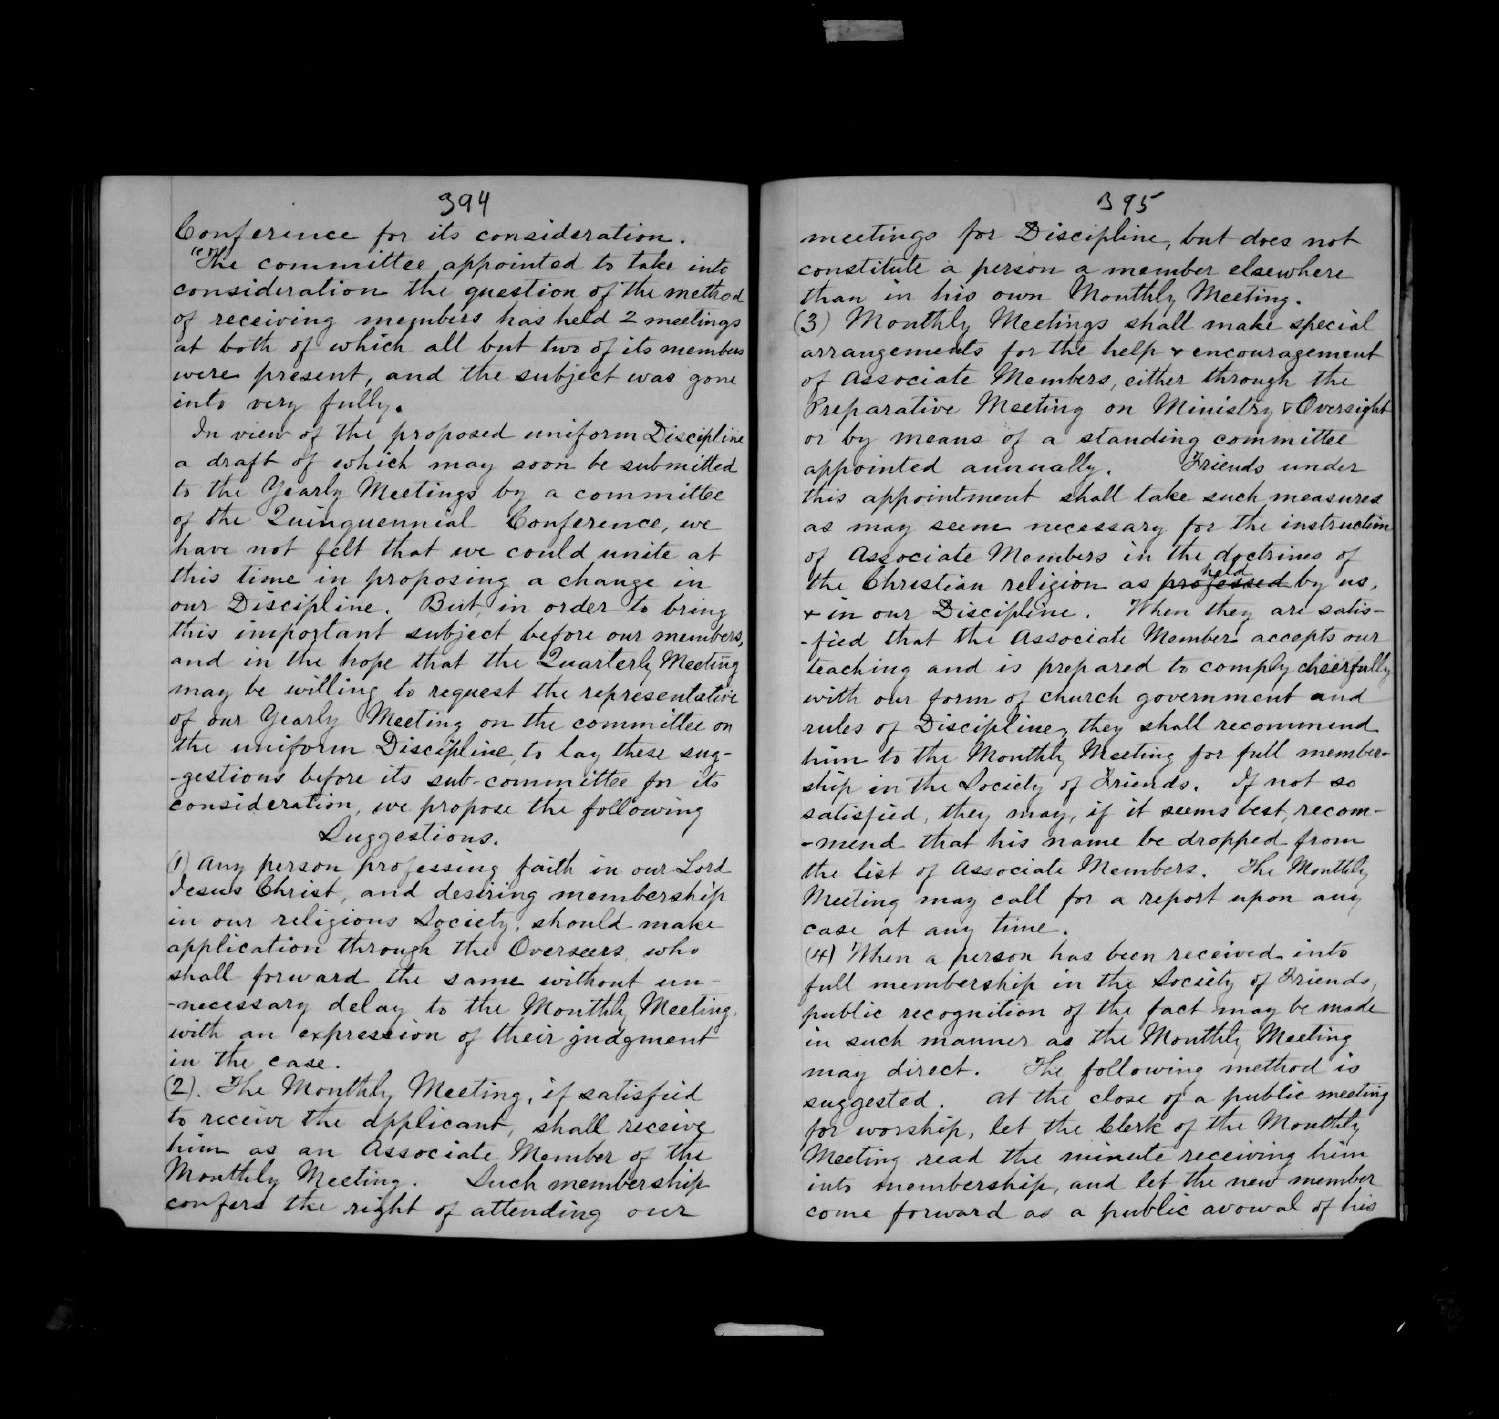 394
Conference for its consideration.
"The committee appointed to take into
consideration the question of the method
of receiving members has held 2 meetings
at both of which all but two of its members
were present, and the subject was gone
into very fully.
In view of the proposed uniform Discipline
a draft of which may soon be submitted
to the Yearly Meetings by a committee
of the Quinquennial Conference, we
have not felt that we could unite at
this time in proposing a change in
our Discipline. But in order to bring
this important subject before our members,
and in the hope that the Quarterly Meeting
may be willing to request the representative
of our Yearly Meeting on the committee on
the uniform Discipline, to lay these sug-
-gestions before its sub-committee for its
consideration, we propose the following
Suggestions.
(1) Any person professing faith in our Lord
Jesus Christ, and desiring membership
in our religious Society, should make
application through the Overseers, who
shall forward the same without un-
-necessary delay to the Monthly Meeting,
with an expression of their judgment
in the case.
(2). The Monthly Meeting, if satisfied
to receive the applicant, shall receive
him as an Associate Member of the
Monthly Meeting. Such membership
confers the right of attending our
395
meetings for Discipline, but does not
constitute a person a member elsewhere
than in his own Monthly Meeting.
(3) Monthly Meetings shall make special
arrangements for the help & encouragement
of Associate Members, either through the
Preparative Meeting on Ministry & Oversight
or by means of a standing committee
appointed annually. Friends under
this appointment shall take such measures
as may seem necessary for the instruction
of Associate Members in the doctrines of
held
the Christian religion as professed by us,
& in our Discipline. When they are satis-
-fied that the Associate Member accepts our
teaching and is prepared to comply cheerfully
with our form of church government and
rules of Discipline, they shall recommend
him to the Monthly Meeting for full member-
ship in the Society of Friends. If not so
satisfied, they may, if it seems best, recom-
-mend that his name be dropped from
the list of Associate Members. The Monthly
Meeting may call for a report upon any
case at any time.
(4) When a person has been received into
full membership in the Society of Friends,
public recognition of the fact may be made
in such manner as the Monthly Meeting
may direct. The following method is
suggested. At the close of a public meeting
for worship, let the Clerk of the Monthly
Meeting read the minute receiving him
into membership, and let the new member
come forward as a public avowal of his